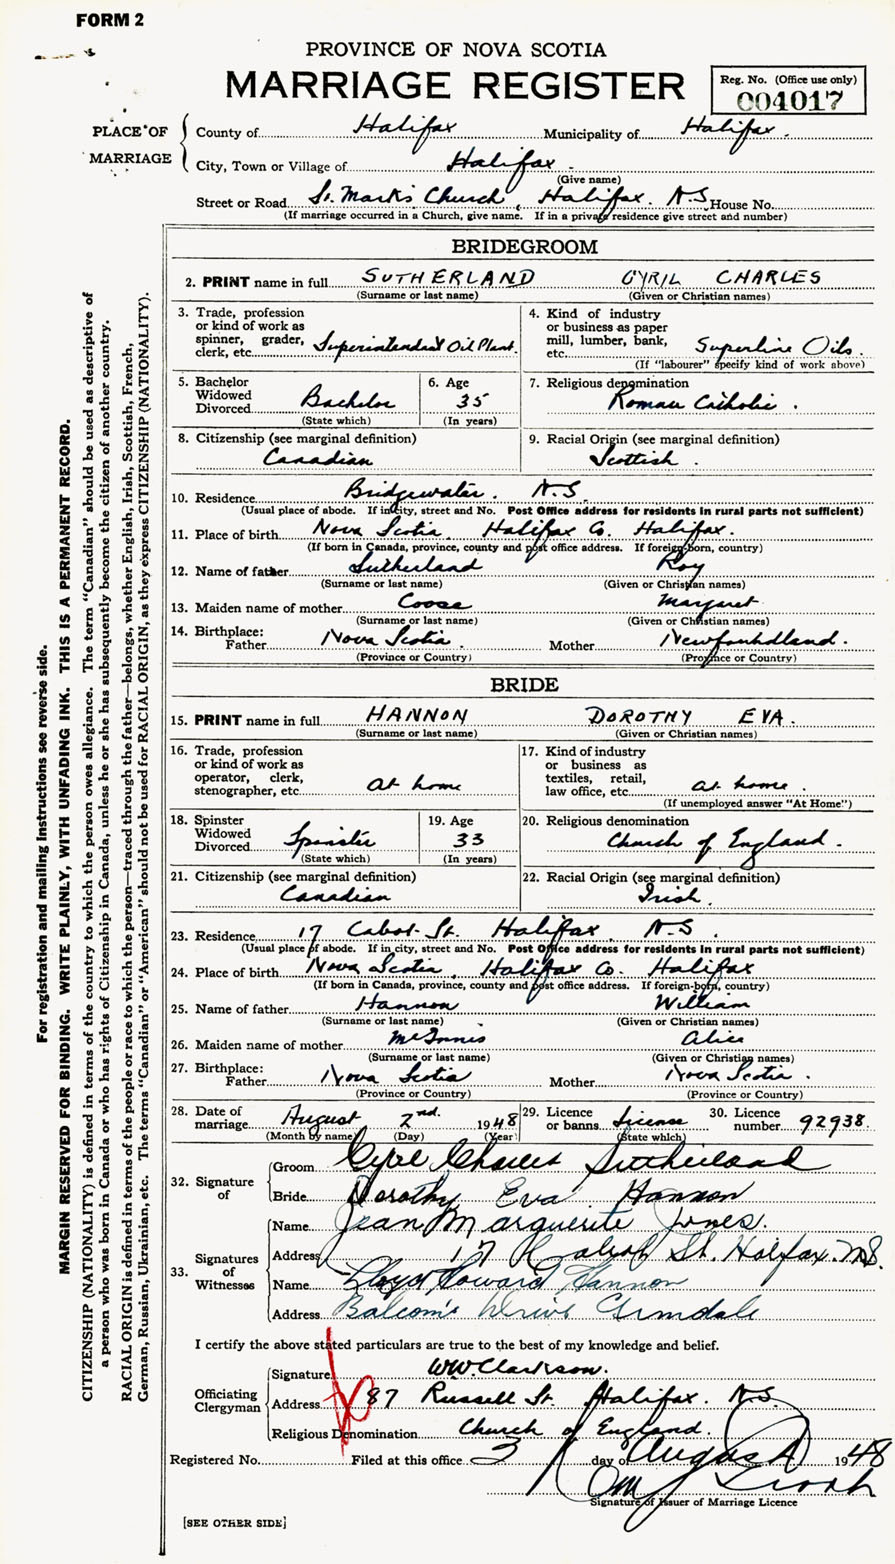 FORM 2
PROVINCE OF NOVA SCOTIA
MARRIAGE REGISTER
Reg. No. (Office use only)
004017
PLACE OF MARRIAGE
County of Halifax Municipality of Halifax.
City, Town or Village of Halifax.
(Give name)
Street or Road St. Mark's Church, Halifax. N.S. House No.
(If marriage occurred in a Church, give name. If in a private residence give street and number)
BRIDEGROOM
2. PRINT name in full SUTHERLAND CYRIL CHARLES
(Surname or last name) (Given or Christian names)
3. Trade, profession or kind of work as spinner, grader, clerk, etc. Superintendent Oil Plant.
4. Kind of industry or business as paper mill, lumber, bank, etc. Superline Oils.
(If "labourer" specify kind of work above)
5. Bachelor Widowed Divorced Bachelor
(State which)
6. Age 35
(In years)
7. Religious denomination Roman Catholic.
8. Citizenship (see marginal definition) Canadian
9. Racial Origin (see marginal definition) Scottish.
10. Residence Bridgewater. N.S.
(Usual place of abode. If in city, street and No. Post Office address for residents in rural parts not sufficient)
11. Place of birth Nova Scotia, Halifax Co. Halifax.
(If born in Canada, province, county and post office address. If foreign-born, country)
12. Name of father Sutherland Roy
(Surname or last name) (Given or Christian names)
13. Maiden name of mother Margaret
(Surname or last name) (Given or Christian names)
14. Birthplace: Father Nova Scotia. Mother Newfoundland.
(Province or Country) (Province or Country)
BRIDE
15. PRINT name in full HANNON DOROTHY EVA.
(Surname or last name) (Given or Christian names)
16. Trade, profession or kind of work as operator, clerk, stenographer, etc. At home
17. Kind of industry or business as textiles, retail, law office, etc. at home.
(If unemployed answer "At Home")
18. Spinster Widowed Divorced Spinster
(State which)
19. Age 33
(In years)
20. Religious denomination Church of England.
21. Citizenship (see marginal definition) Canadian
22. Racial Origin (see marginal definition) Irish.
23. Residence 17 Cabot St. Halifax, N.S.
(Usual place of abode. If in city, street and No. Post Office address for residents in rural parts not sufficient)
24. Place of birth Nova Scotia, Halifax Co. Halifax
(If born in Canada, province, county and post office address. If foreign-born, country)
25. Name of father Hannon William
(Surname or last name) (Given or Christian names)
26. Maiden name of mother McInnis Alice
(Surname or last name) (Given or Christian names)
27. Birthplace: Father Nova Scotia Mother Nova Scotia.
(Province or Country) (Province or Country)
28. Date of marriage August 2nd. 1948
(Month by name) (Day) (Year)
29. Licence or banns License
(State which)
30. Licence number 92938.
32. Signature of
Groom Cyril Charles Sutherland
Bride Dorothy Eva Hannon
33. Signatures of Witnesses
Name Jean Marguerite Jones.
Address 17 Cabot St. Halifax. N.S.
Name Lloyd Howard Hannon
Address Balcom's Drive Armdale
I certify the above stated particulars are true to the best of my knowledge and belief.
Officiating Clergyman
Signature W.W. Clarkson.
Address 87 Russell St. Halifax. N.S.
Religious Denomination Church of England.
Registered No. Filed at this office 3 day of August 1948
Signature of Issuer of Marriage Licence
[SEE OTHER SIDE]
For registration and mailing instructions see reverse side.
MARGIN RESERVED FOR BINDING. WRITE PLAINLY, WITH UNFADING INK. THIS IS A PERMANENT RECORD.
CITIZENSHIP (NATIONALITY) is defined in terms of the country to which the person owes allegiance. The term "Canadian" should be used as descriptive of
a person who was born in Canada or who has rights of Citizenship in Canada, unless he or she has subsequently become the citizen of another country.
RACIAL ORIGIN is defined in terms of the people or race to which the person—traced through the father—belongs, whether English, Irish, Scottish, French,
German, Russian, Ukrainian, etc. The terms "Canadian" or "American" should not be used for RACIAL ORIGIN, as they express CITIZENSHIP (NATIONALITY).